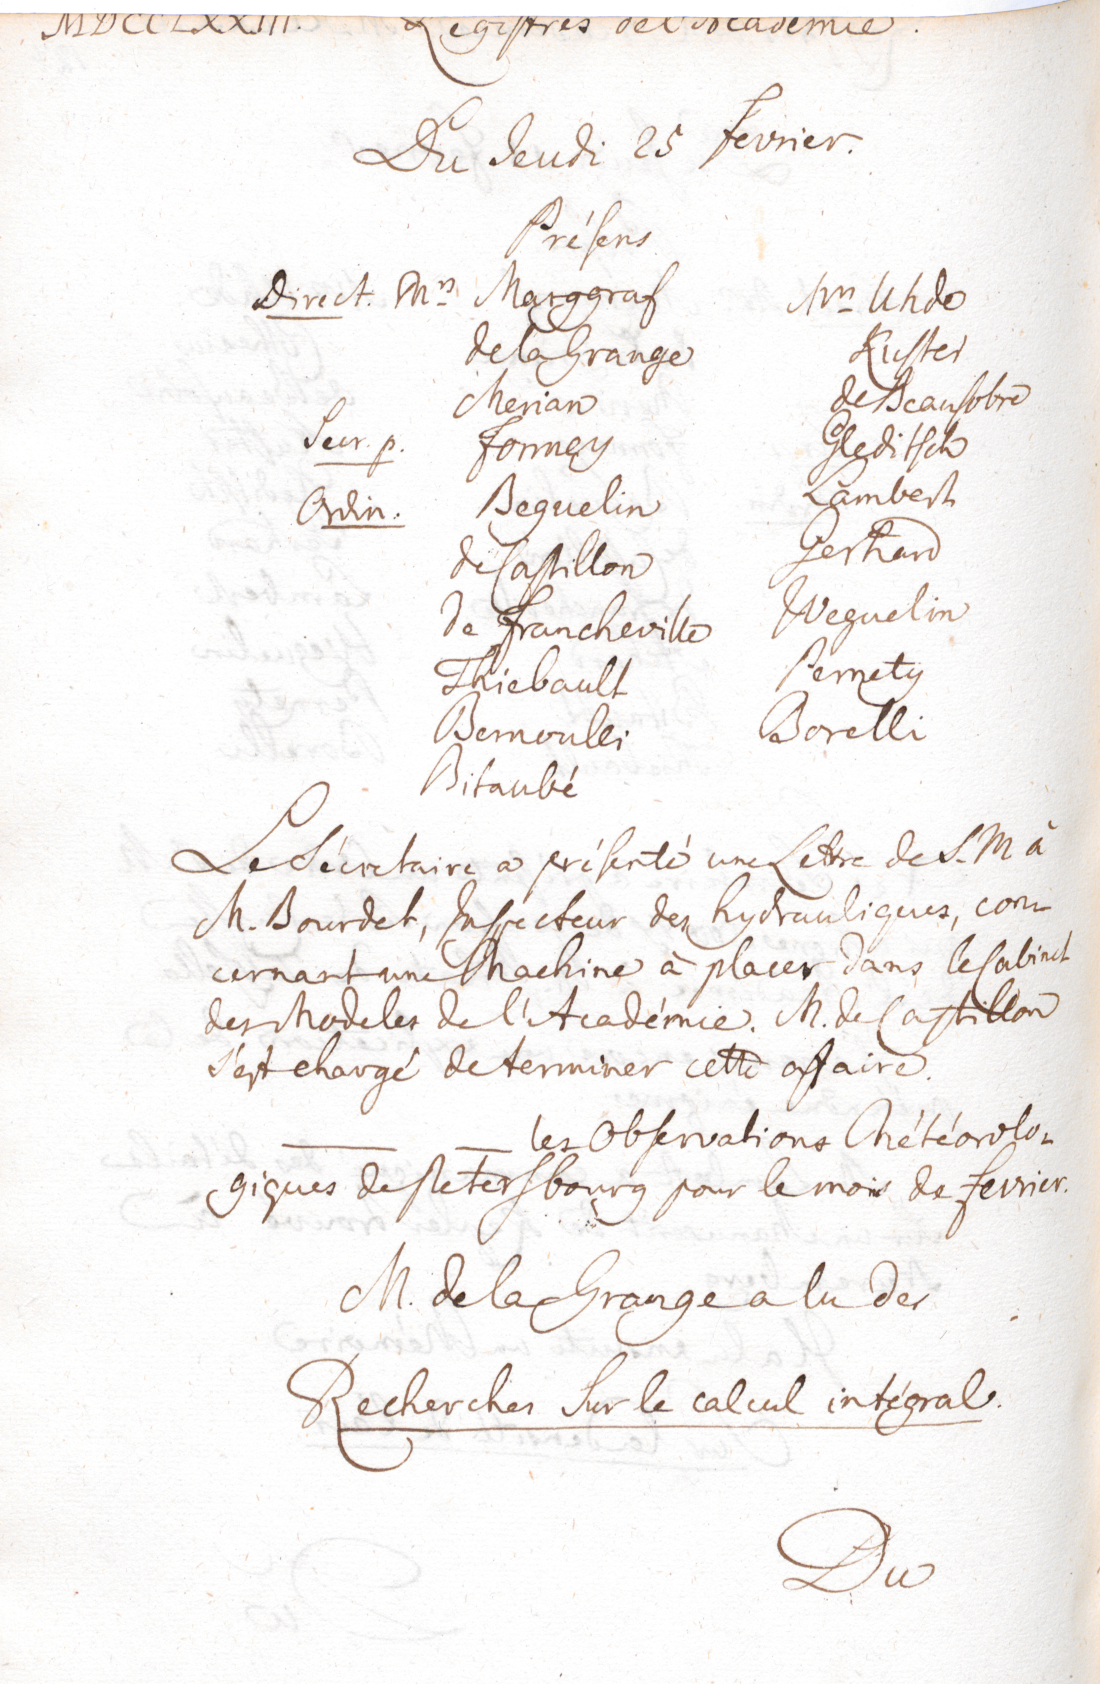 MDCCLXXIII. Registres de l'Academie.
Du Jeudi 25 fevrier.
Présens
Direct. Mrs Marggraf Mrs Uhde
de la Grange Kuster
Merian de Beausobre
Secr. p. Formey Gleditsch
Ordin. Beguelin Lambert
de Castillon Gerhard
de Francheville Weguelin
Thiebault Pernety
Bernoulli Borelli
Bitaubé
Le Sécretaire a présenté une Lettre de S. M à
M. Bourdet, Inspecteur des hydrauliques, con-
cernant une Machine à placer dans le Cabinet
des Modeles de l'Académie. M. de Castillon
s'est chargé de terminer cette affaire.
— — les Observations Météorolo-
giques de Petersbourg pour le mois de fevrier.
M. de la Grange a lu des
Recherches sur le calcul intégral.
Du